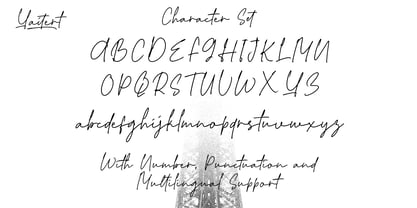 Yaitert
Character Set
ABCDEFGHIJKLMN
OPQRSTUVWXYZ
abcdefghijklmnopqrstuvwxyz
With Number, Punctuation and
Multilingual Support